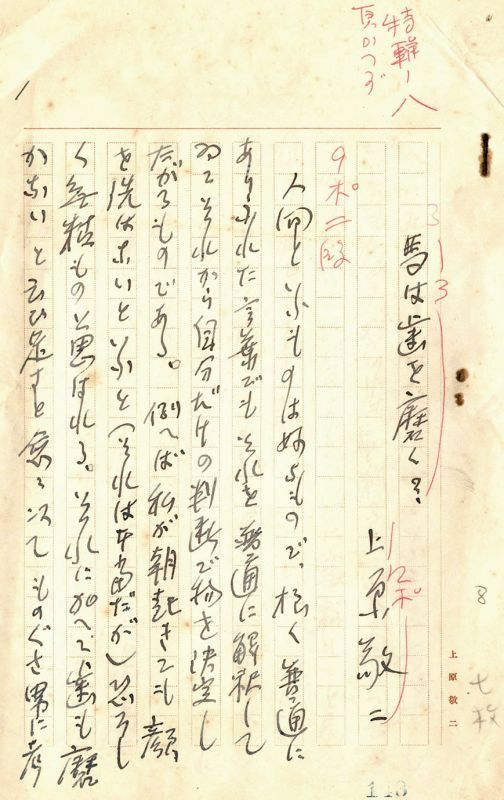 特輯ノ八
頁かつず
馬は歯を磨く?
13
上原敬二
12ポ
9ポ二段
人間と云ふものは妙なもので、極く普通に
ありふれた言葉でもそれを普通に解釈して
それから自分だけの判断で物を決定し
たがるものである。例へば私が朝起きても顔
を洗はないと云ふと(それは本当だが)恐ろし
く無精ものと思はれる。それに加へて、歯も磨
かないと云ひ足すと愈々以てものぐさ男に考
上原敬二
8
七枚
113